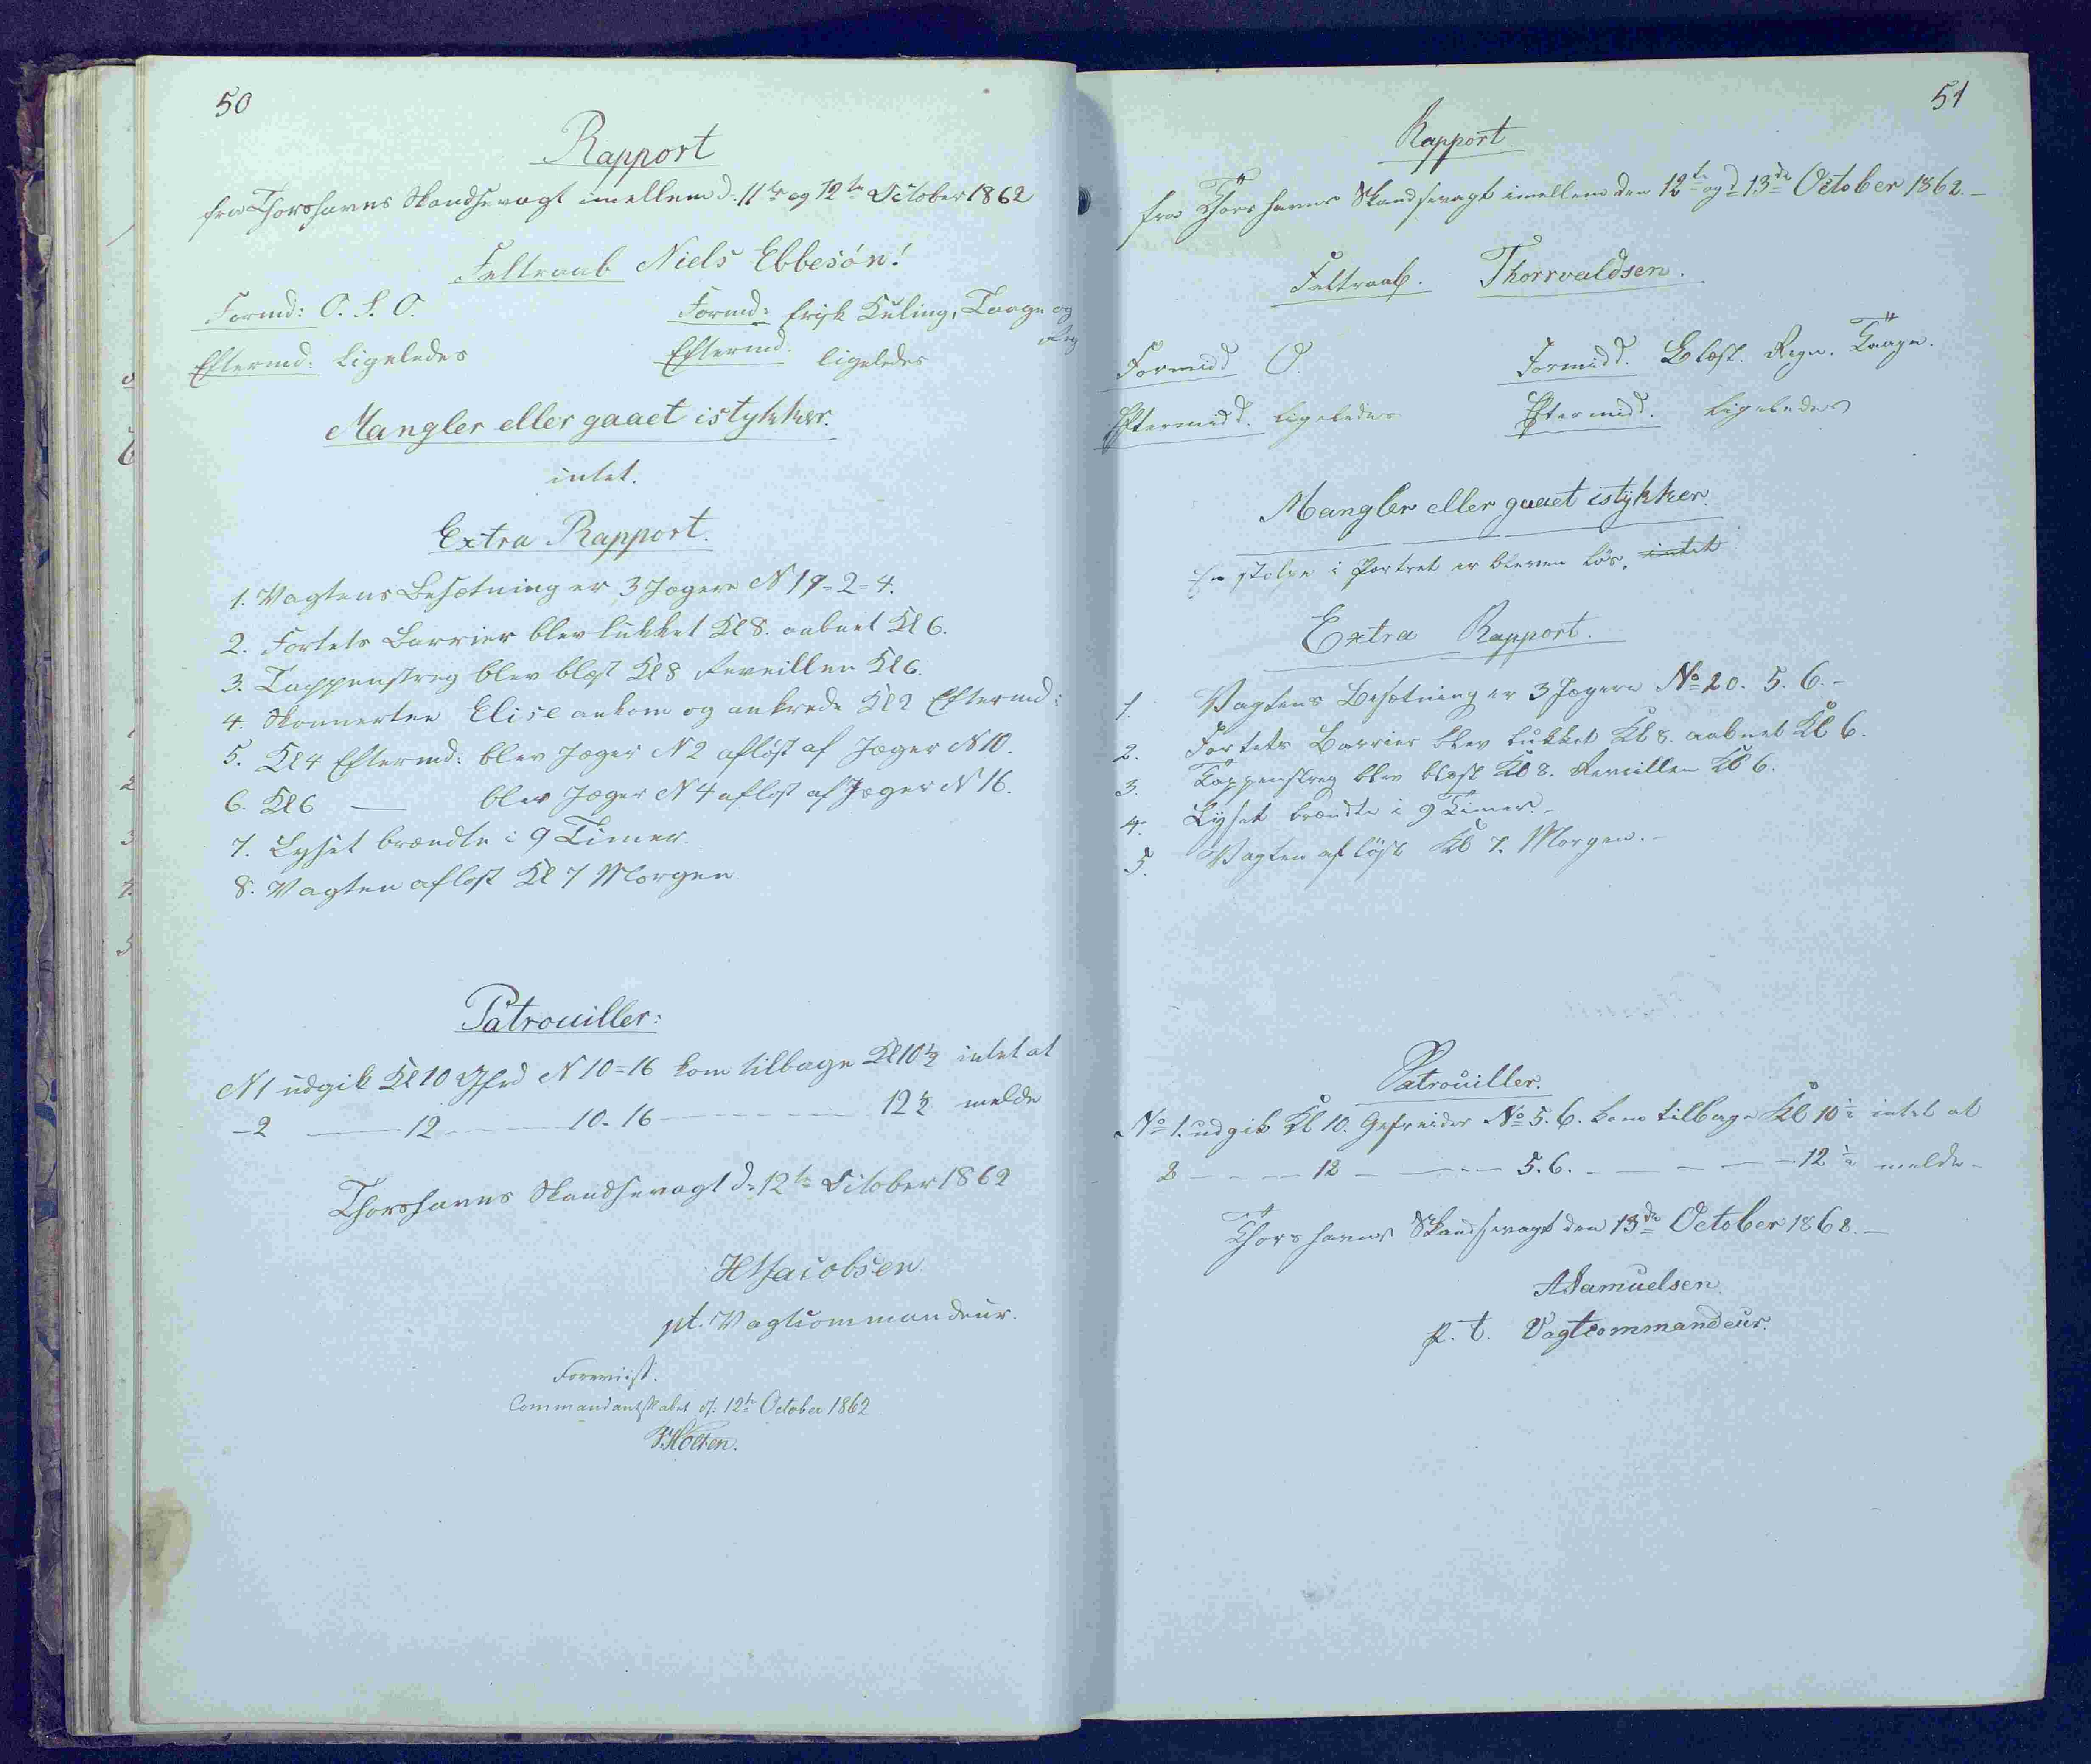 50
Rapport
fra Thorshavns Skandsevagt imellem d. 11te og 12te October 1862
Feltraab Niels Ebbesøn!
Formd: O. S. O. Formd: frisk Kuling, Taage og
Reg
Eftermd: Ligeledes Eftermd. ligeledes
Mangler eller gaaet istykker.
intet.
Extra Rapport.
1. Vagtens Besætning er 3 Jægere N 19-2-4.
2. Fortets Barrier blev lukket Kl 8. aabnet Kl 6.
3. Tappenstreg blev blæst Kl 8 Reveillen Kl 6.
4. Skonnerten Elise ankom og ankrede Kl 2 Eftermd:
5. Kl 4 Eftermd: blev Jæger N 2 afløst af Jæger N 10.
6. Kl 6 — blev Jæger N 4 afløst af Jæger N 16.
7. Lyset brændte i 9 Timer.
8. Vagten afløst Kl 7 Morgen
Patrouiller:
N 1 udgik Kl 10 Gfrd N 10=16 kom tilbage Kl 10½ intet at
-2 — 12 — 10-16 — 12½ melde
Thorshavns Skandsevagt d. 12te October 1862
HJacobsen
pt. Vagtcommandeur.
Foreviist.
Commandantskabet d: 12te October 1862
Holten.
51
Rapport
fra Thorshavns Skandsevagt imellem den 12te og d 13de October 1862.-
Feltraab. Thorrvaldsen.
Formidd O. Formidd. Blæst. Regn. Taage.
Eftermidd. Ligeledes Eftermidd. Ligeledes
Mangler eller gaaet istykker.
En stolpe i Portret er bleven løs, intet
Extra Rapport.
1. Vagtens Besætning er 3 Jægere No 20. 5. 6.-
2. Fortets Barrier blev lukket Kl 8. aabnet Kl 6.
3. Tappenstreg blev blæst Kl 8. Reveillen Kl 6.
4. Lyset brændte i 9 Timer.-
5. Vagten afløst Kl 7. Morgen.-
Patrouiller.
No 1. udgik Kl 10. Gefreider No 5. 6. kom tilbage Kl 10½ intet at
2 — 12 — 5. 6. — 12½ melde-
Thorshavns Skandsevagt den 13de October 1862.-
ASamuelsen.
p. t. Vagtcommandeur.